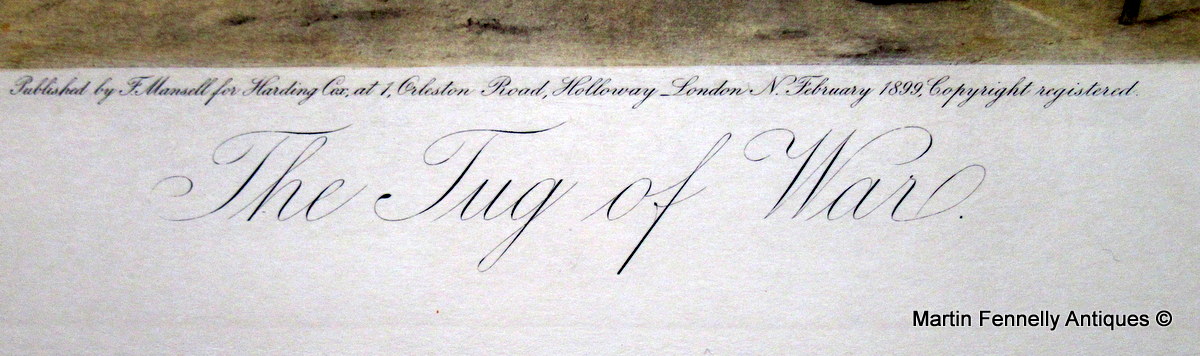 Published by F. Mansell for Harding Cox, at 1, Orleston Road, Holloway London N. February 1899, Copyright registered.
The Tug of War.
Martin Fennelly Antiques ©